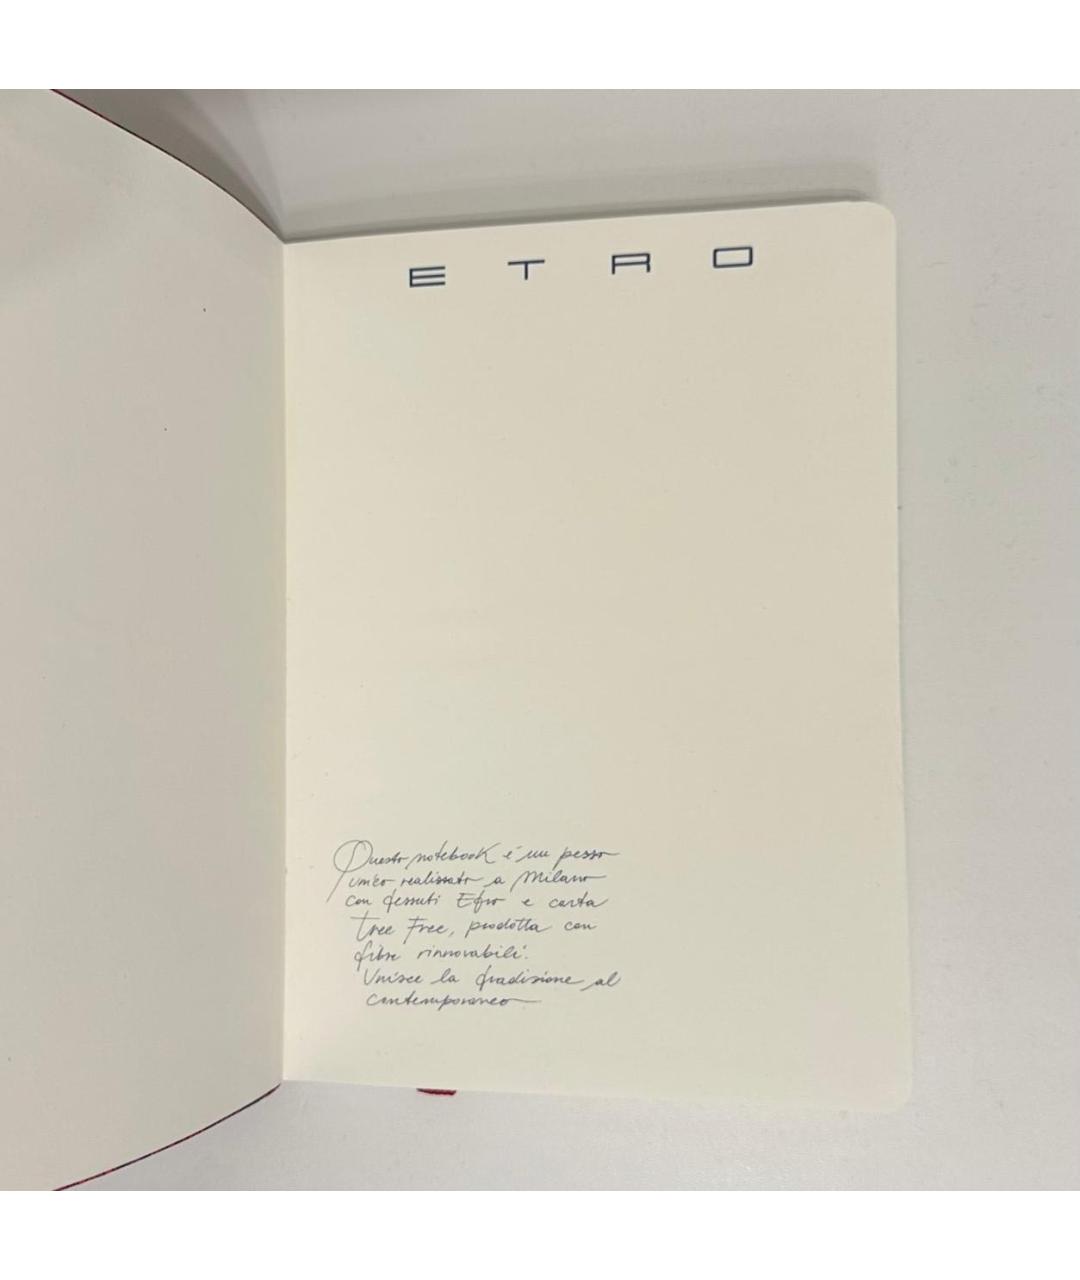 ETRO
Questo notebook è un pezzo
unico realizzato a Milano
con tessuti Etro e carta
Tree Free, prodotta con
fibre rinnovabili.
Unisce la tradizione al
contemporaneo